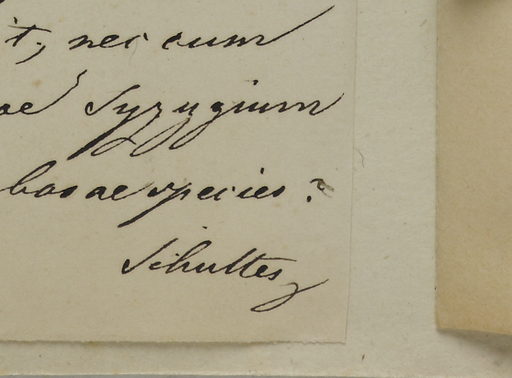 it, nec cum
ae Syzygium
bosae species?
Schultes